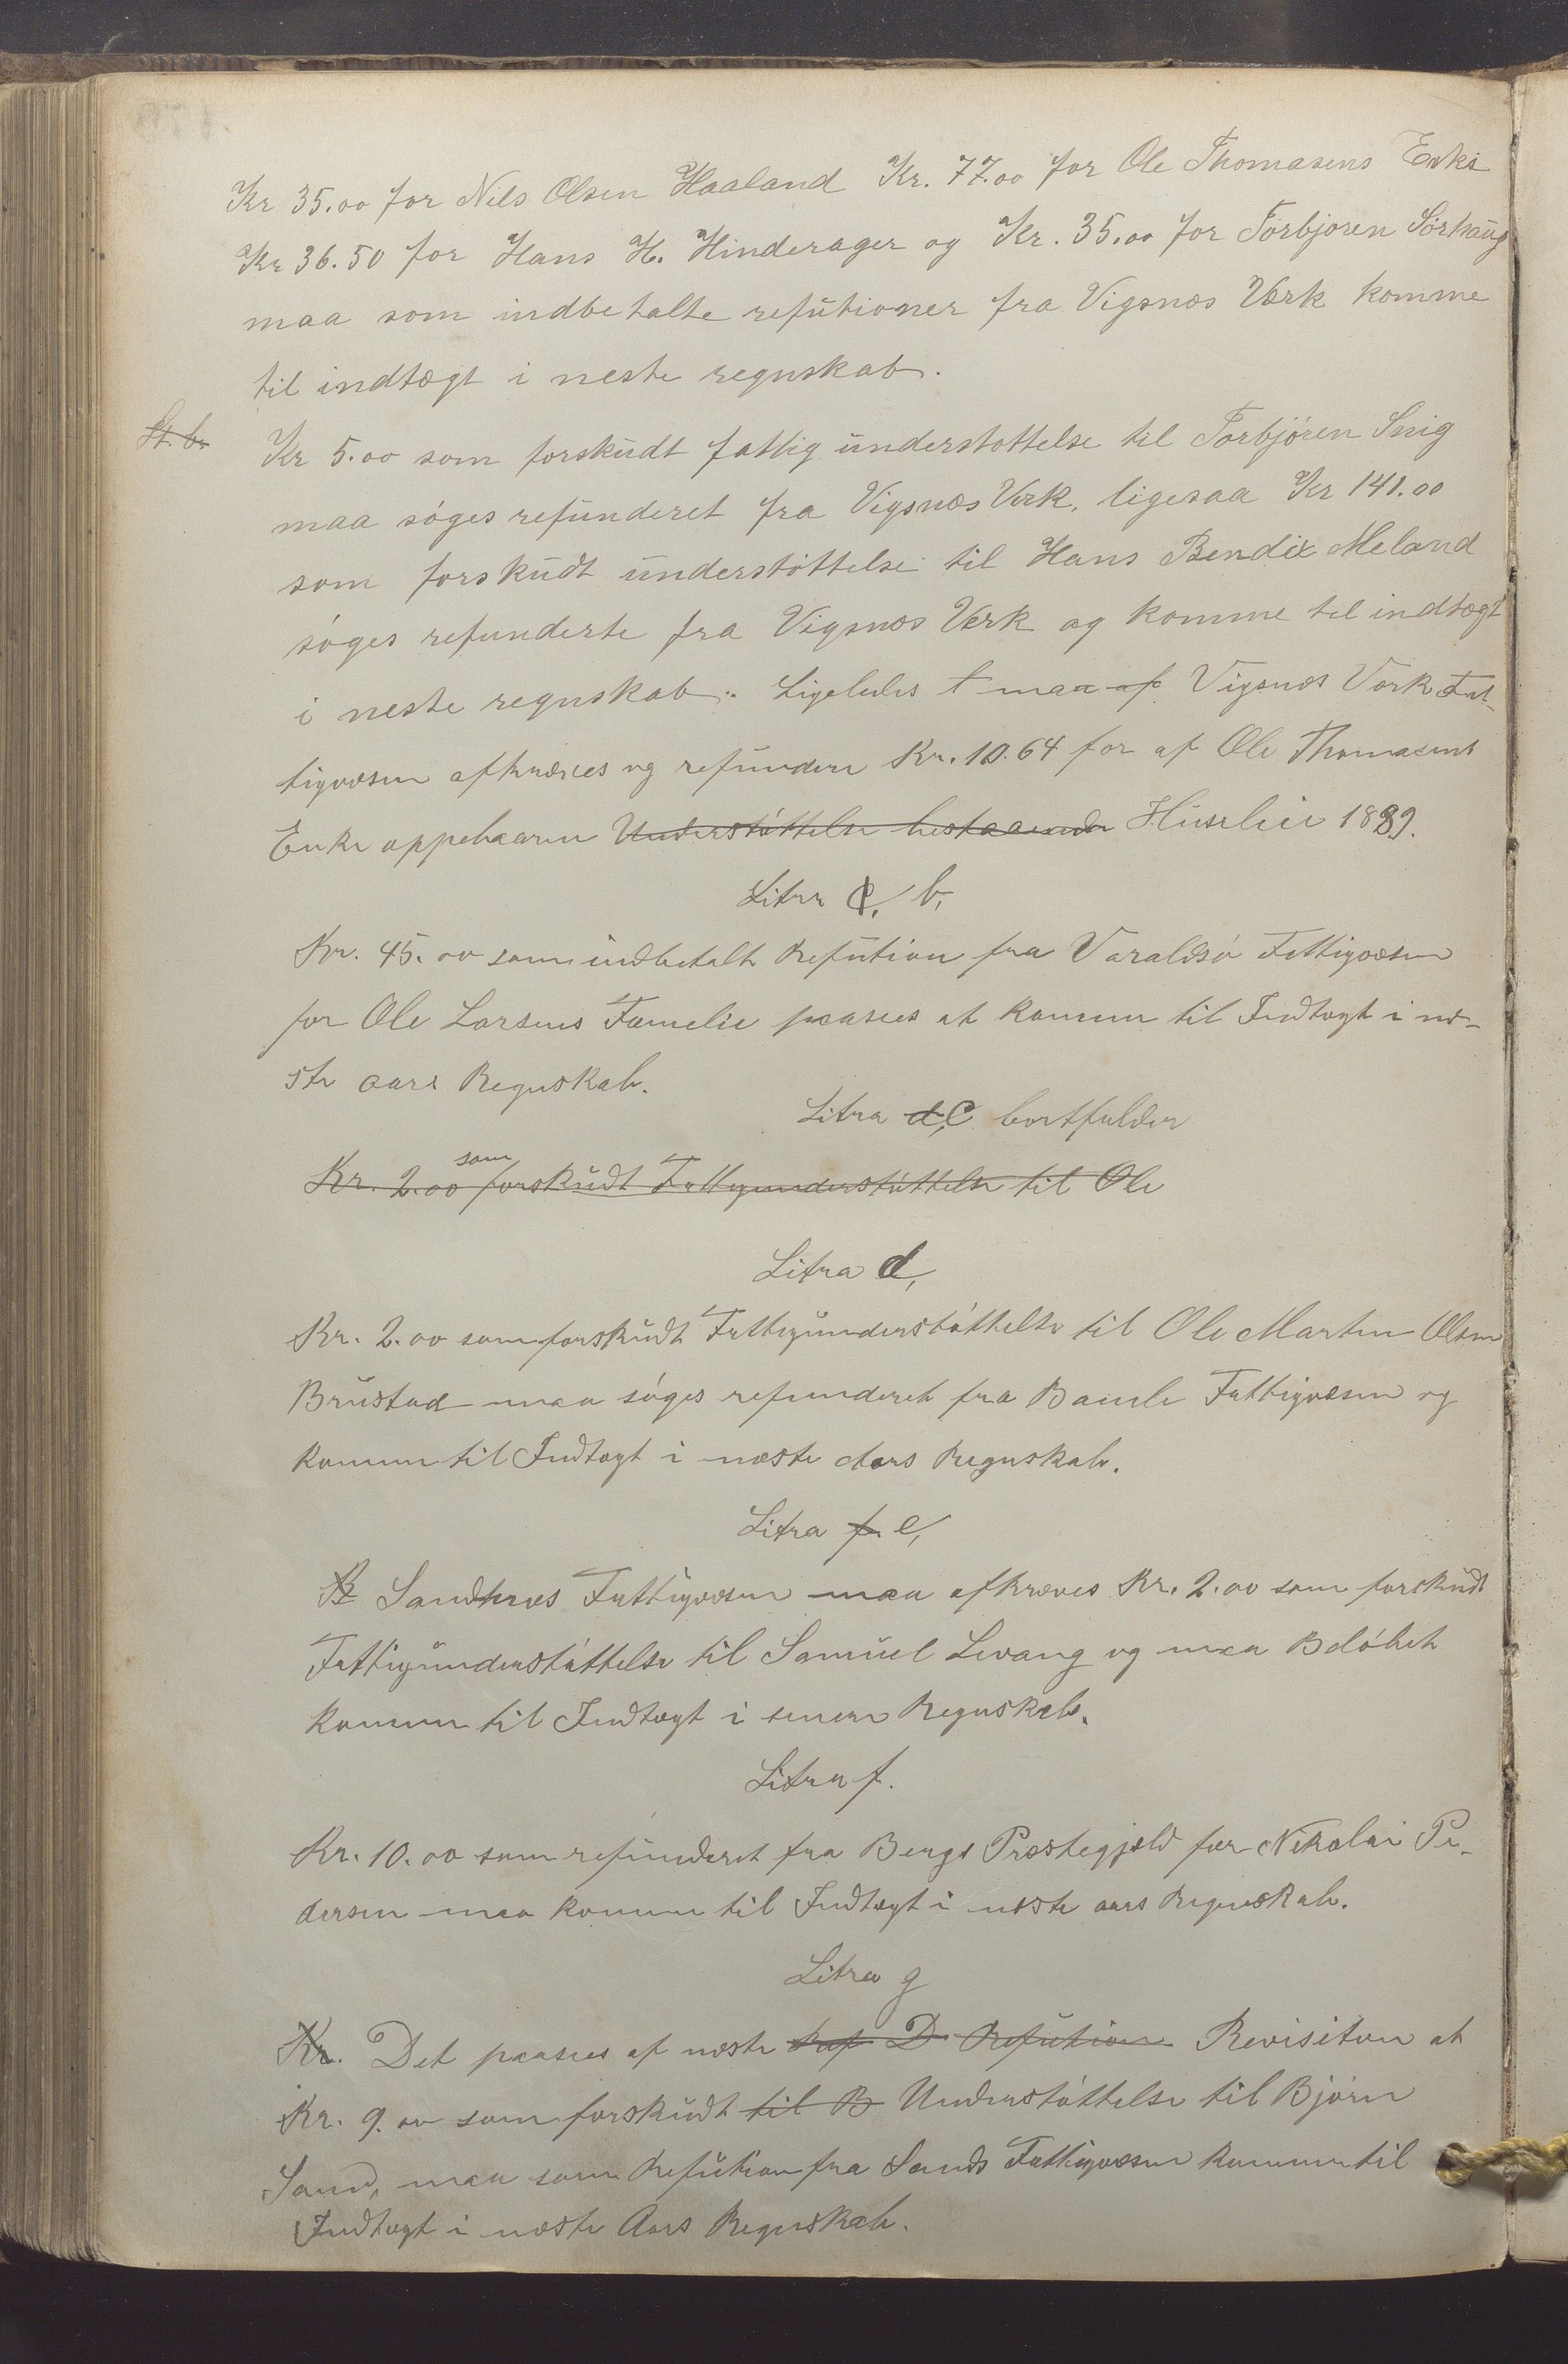 Kr 35.00 for Nils Olsen Haaland Kr. 77.00 for Ole Thomasens Enke
Kr 36.50 for Hans H. Hinderager og Kr. 35.00 for Torbjoren Sörhaug
maa som indbetalte refutioner fra Vigsnæs Værk komme
til indtægt i neste regnskab.
Lt. b.
Kr 5.00 som forskudt fattig understottelse til Torbjören Snig
maa söges refunderet fra Vigsnæs Værk, ligesaa Kr 141.00
som forskudt understöttelse til Hans Bendix Meland
söges refunderte fra Vigsnæs Værk og komme til indtægt
i neste regnskab. Ligeledes t maa af Vigsnæs Værk Fat-
tigvæsen afkræves og refundere Kr. 10.64 for af Ole Thomasens
Enke oppebaaren Understöttelse bestaaende Huusleie 1889.
Litra b,
Kr. 45.00 som indbetalt Refution fra Varaldsö Fattigvæsen
for Ole Larsens Familie paasees at komme til Indtægt i næ-
ste aars Regnskab.
Litra d, C bortfalder
Kr. 2.00 som forskudt Fattigunderstöttelse til Ole
Litra d,
Kr. 2.00 som forskudt Fattigunderstöttelse til Ole Martin Olsen
Brustad maa söges refunderet fra Bamle Fattigvæsen og
komme til Indtægt i næste Aars Regnskab.
Litra f. e,
Kr Sandknæs Fattigvæsen maa afkræves Kr. 2.00 som forskudt
Fattigunderstöttelse til Samuel Levang og maa Belöbet
komme til Indtægt i senere Regnskab.
Litra f.
Kr. 10.00 som refunderet fra Bergs Præstegjæld for Nikolai Pe-
dersen maa komme til Indtægt i næste aars Regnskab.
Litra g
Kr. Det paasees af næste Ref D Refution Revisition at
Kr. 9.00 som forskudt til B Understöttelse til Björn
Sand, maa som Refution fra Sands Fattigvæsen komme til
Indtægt i næste Aars Regnskab.